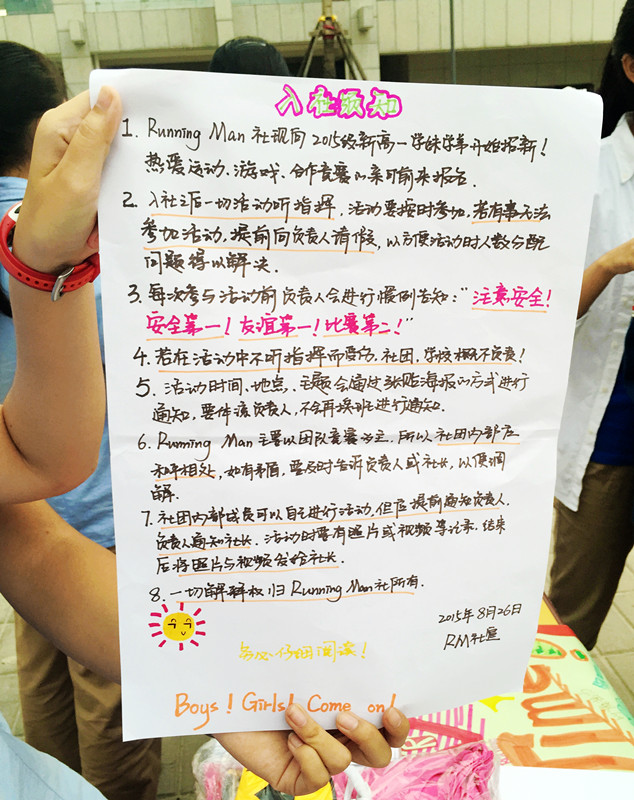 入社须知
1. Running Man 社现向2015级新高一学妹学弟开始招新!
热爱运动、游戏、合作竞赛的亲可前来报名.
2. 入社之后一切活动听指挥, 活动要按时参加, 若有事无法
参加活动, 提前向负责人请假, 以方便活动时人数分配
问题得以解决.
3. 每次参与活动前负责人会进行惯例告知:“注意安全!
安全第一! 友谊第一! 比赛第二!”
4. 若在活动中不听指挥而受伤, 社团, 学校概不负责!
5. 活动时间、地点、主题会通过张贴海报的方式进行
通知, 要件该负责人, 不会再挨班进行通知.
6. Running Man 主要以团队竞赛为主, 所以社团内部应
和平相处, 如有矛盾, 要及时告诉负责人或社长, 以便调
解.
7. 社团内部成员可以自主进行活动, 但应提前通知负责人,
负责人通知社长. 活动时要有照片或视频等记录. 结束
后将照片与视频发给社长.
8. 一切解释权归Running Man社所有.
2015年8月26日
RM社宣
务必仔细阅读!
Boys! Girls! Come on!